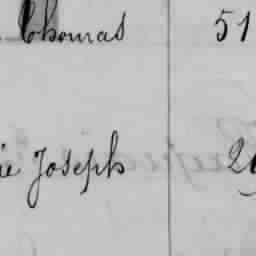 Thomas 51
ie Joseph 2